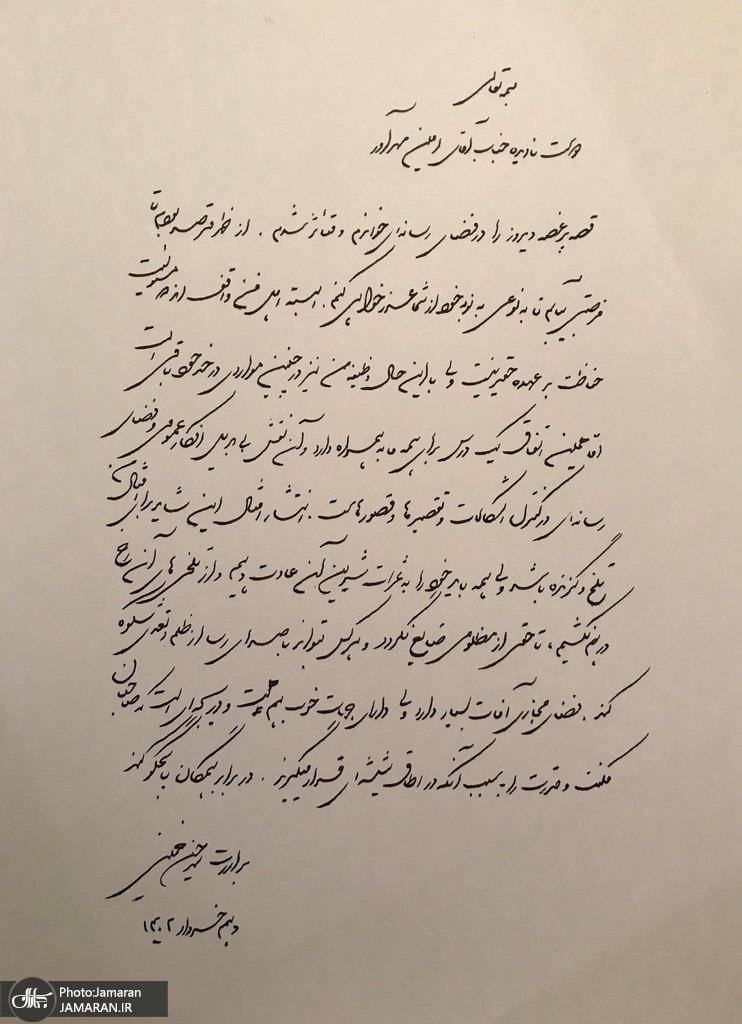 بسمه تعالی
دوست نادیده جناب آقای امین مهرآور
قصه پر غصه دیروز را در فضای رسانه‌ای خواندم و متأثر شدم. از خدا فرصت
فرصتی بیابم تا به نوعی به نوبه خود از شما عذرخواهی کنم. البته اهل فن واقف‌اند مسئولیت
حفاظت بر عهده حقیر نیست ولی با این حال وظیفه من نیز در چنین مواردی در حد خود باقی است
امّا همین اتفاق یک درس برای همه ما به همراه دارد و آن نقش بی‌بدیل افکار عمومی و فضای
رسانه‌ای در کنترل اشکالات و تقصیرها و قصورهاست. انتشار امثال این شاید برای امثال ما
تلخ و گزنده باشد ولی همه باید خود را به ثمرات شیرین آن عادت دهیم و از تلخی‌های آن رخ
در هم نکشیم، تا حقی از مظلومی ضایع نگردد و هر کس بتواند با صدای رسا از ظلم واقعه شکوه
کند. فضای مجازی آفات بسیار دارد ولی دارای جهات خوب هم هست و دریچه‌ای است که صاحبان
مکنت و قدرت را به سبب آنکه در اطاق شیشه‌ای قرار میگیرند. در برابر همگان پاسخگو کند
برادرت سید حسن خمینی
دهم خرداد ۱۴۰۲
Photo:Jamaran
JAMARAN.IR
جماران